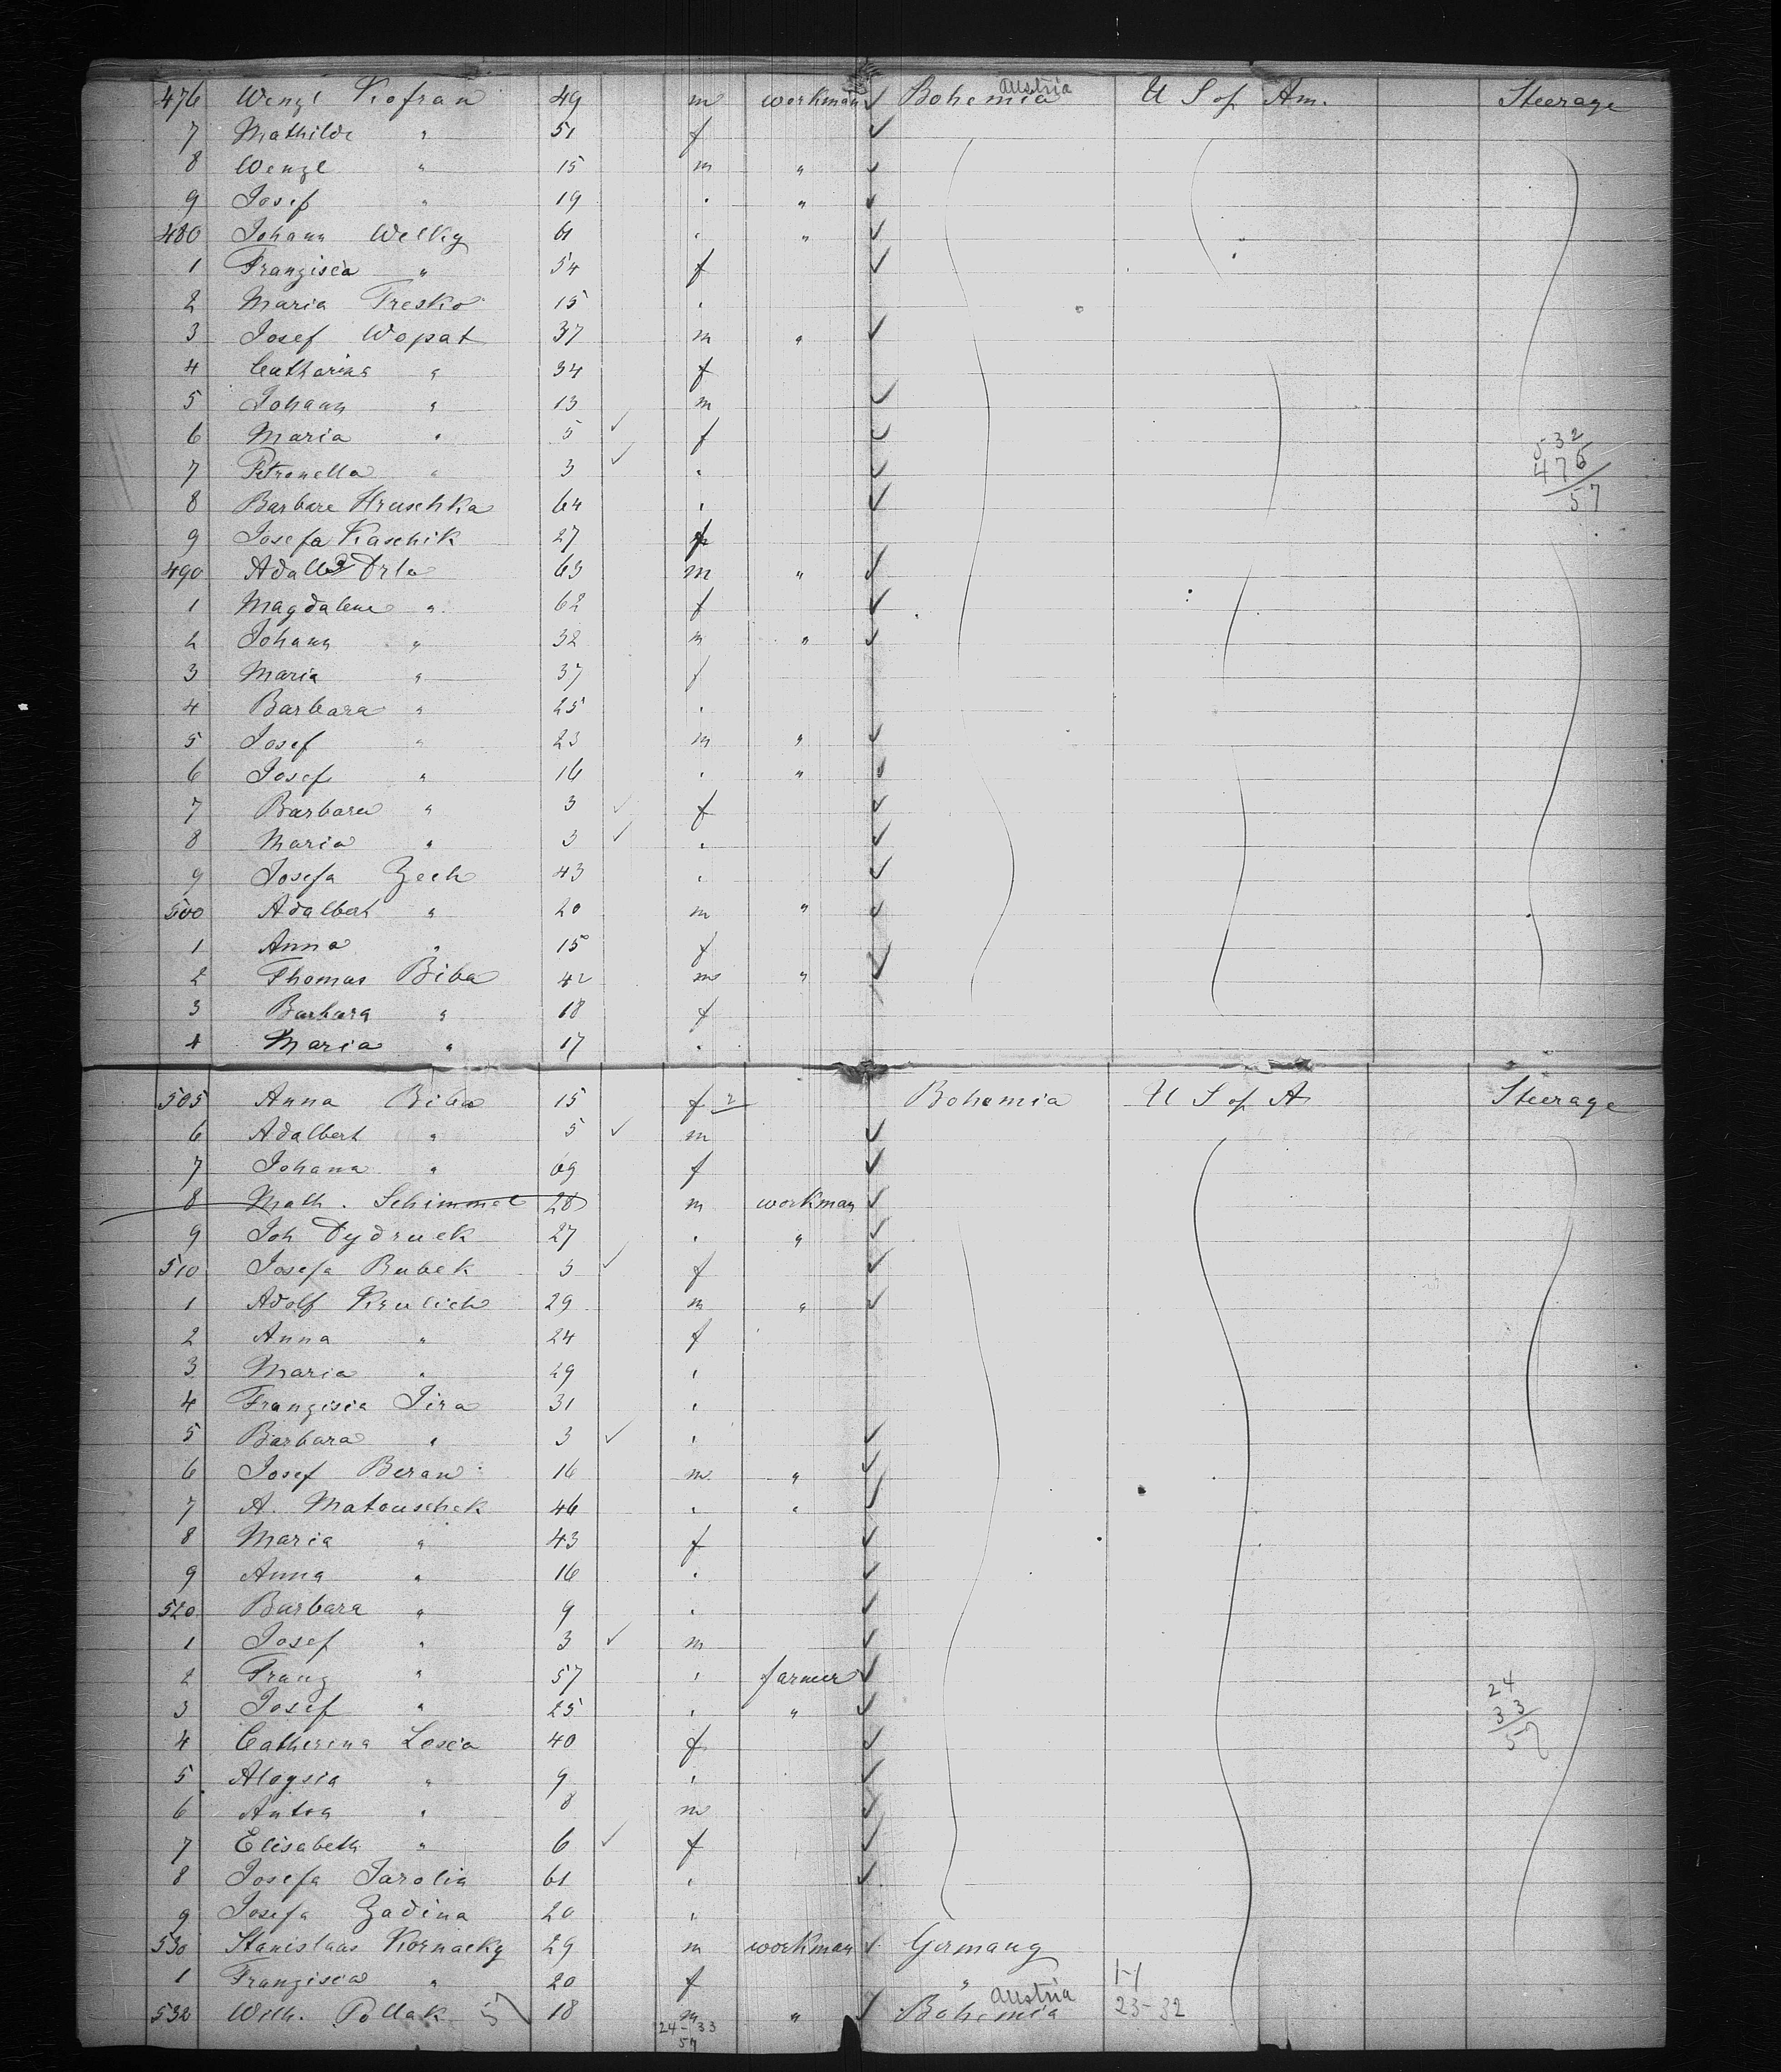 476 Wenzl Kofran 49 m workman ✓ Bohemia Austria U S of Am. Steerage
7 Mathilde " 51 f ✓
8 Wenzl " 15 m " ✓
9 Josef " 19 " " ✓
480 Johann Welky 61 " " ✓
1 Franzisca " 54 f ✓
2 Maria Tresko 15 "
3 Josef Wopat 37 m " ✓
4 Catharina " 34 f
5 Johann " 13 m ✓
6 Maria " 5 ✓ f ✓
7 Petronella " 3 ✓ " ✓
8 Barbara Hruschka 64 " ✓
532
476
57
9 Josefa Kaschik 27 f
490 Adalb Drla 63 m " ✓
1 Magdalene " 62 f ✓
2 Johann " 32 m " ✓
3 Maria " 37 f
4 Barbara " 25 "
5 Josef " 23 m " ✓
6 Josef " 16 " " ✓
7 Barbara " 3 ✓ f ✓
8 Maria " 3 ✓ " ✓
9 Josefa Zech 43 " ✓
500 Adalbert " 20 m " ✓
1 Anna " 15 f ✓
2 Thomas Biba 42 m " ✓
3 Barbara " 18 f
4 Maria " 17 "
505 Anna Biba 15 f 2 Bohemia U S of A Steerage
6 Adalbert " 5 ✓ m ✓
7 Johana " 69 f ✓
8 Math. Schimmel 28 m workman ✓
9 Joh Dydruck 27 " " ✓
510 Josefa Bubek 3 ✓ f ✓
1 Adolf Krulich 29 m " ✓
2 Anna " 24 f
3 Maria " 29 "
4 Franzisca Jira 31 "
5 Barbara " 3 ✓ " ✓
6 Josef Beran 16 m " ✓
7 A. Matouschek 46 " " ✓
8 Maria " 43 f ✓
9 Anna " 16 " ✓
520 Barbara " 9 " ✓
1 Josef " 3 ✓ m ✓
2 Franz " 57 " farmer ✓
3 Josef " 25 " " ✓
24
33
57
4 Catherina Losca 40 f ✓
5 Aloysia " 9 " ✓
6 Anton " 8 m ✓
7 Elisabeth " 6 ✓ f ✓
8 Josefa Jarolin 61 " ✓
9 Josefa Zadina 20 "
530 Stanislaus Kornacky 29 m workman ✓ Germany
1 Franzisca " 20 f " 1-1
532 Wilh. Pollak 57 18 m " ✓ Bohemia Austria 23-32
24-33
57